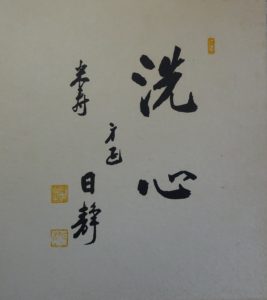 洗心
米寿
日靜